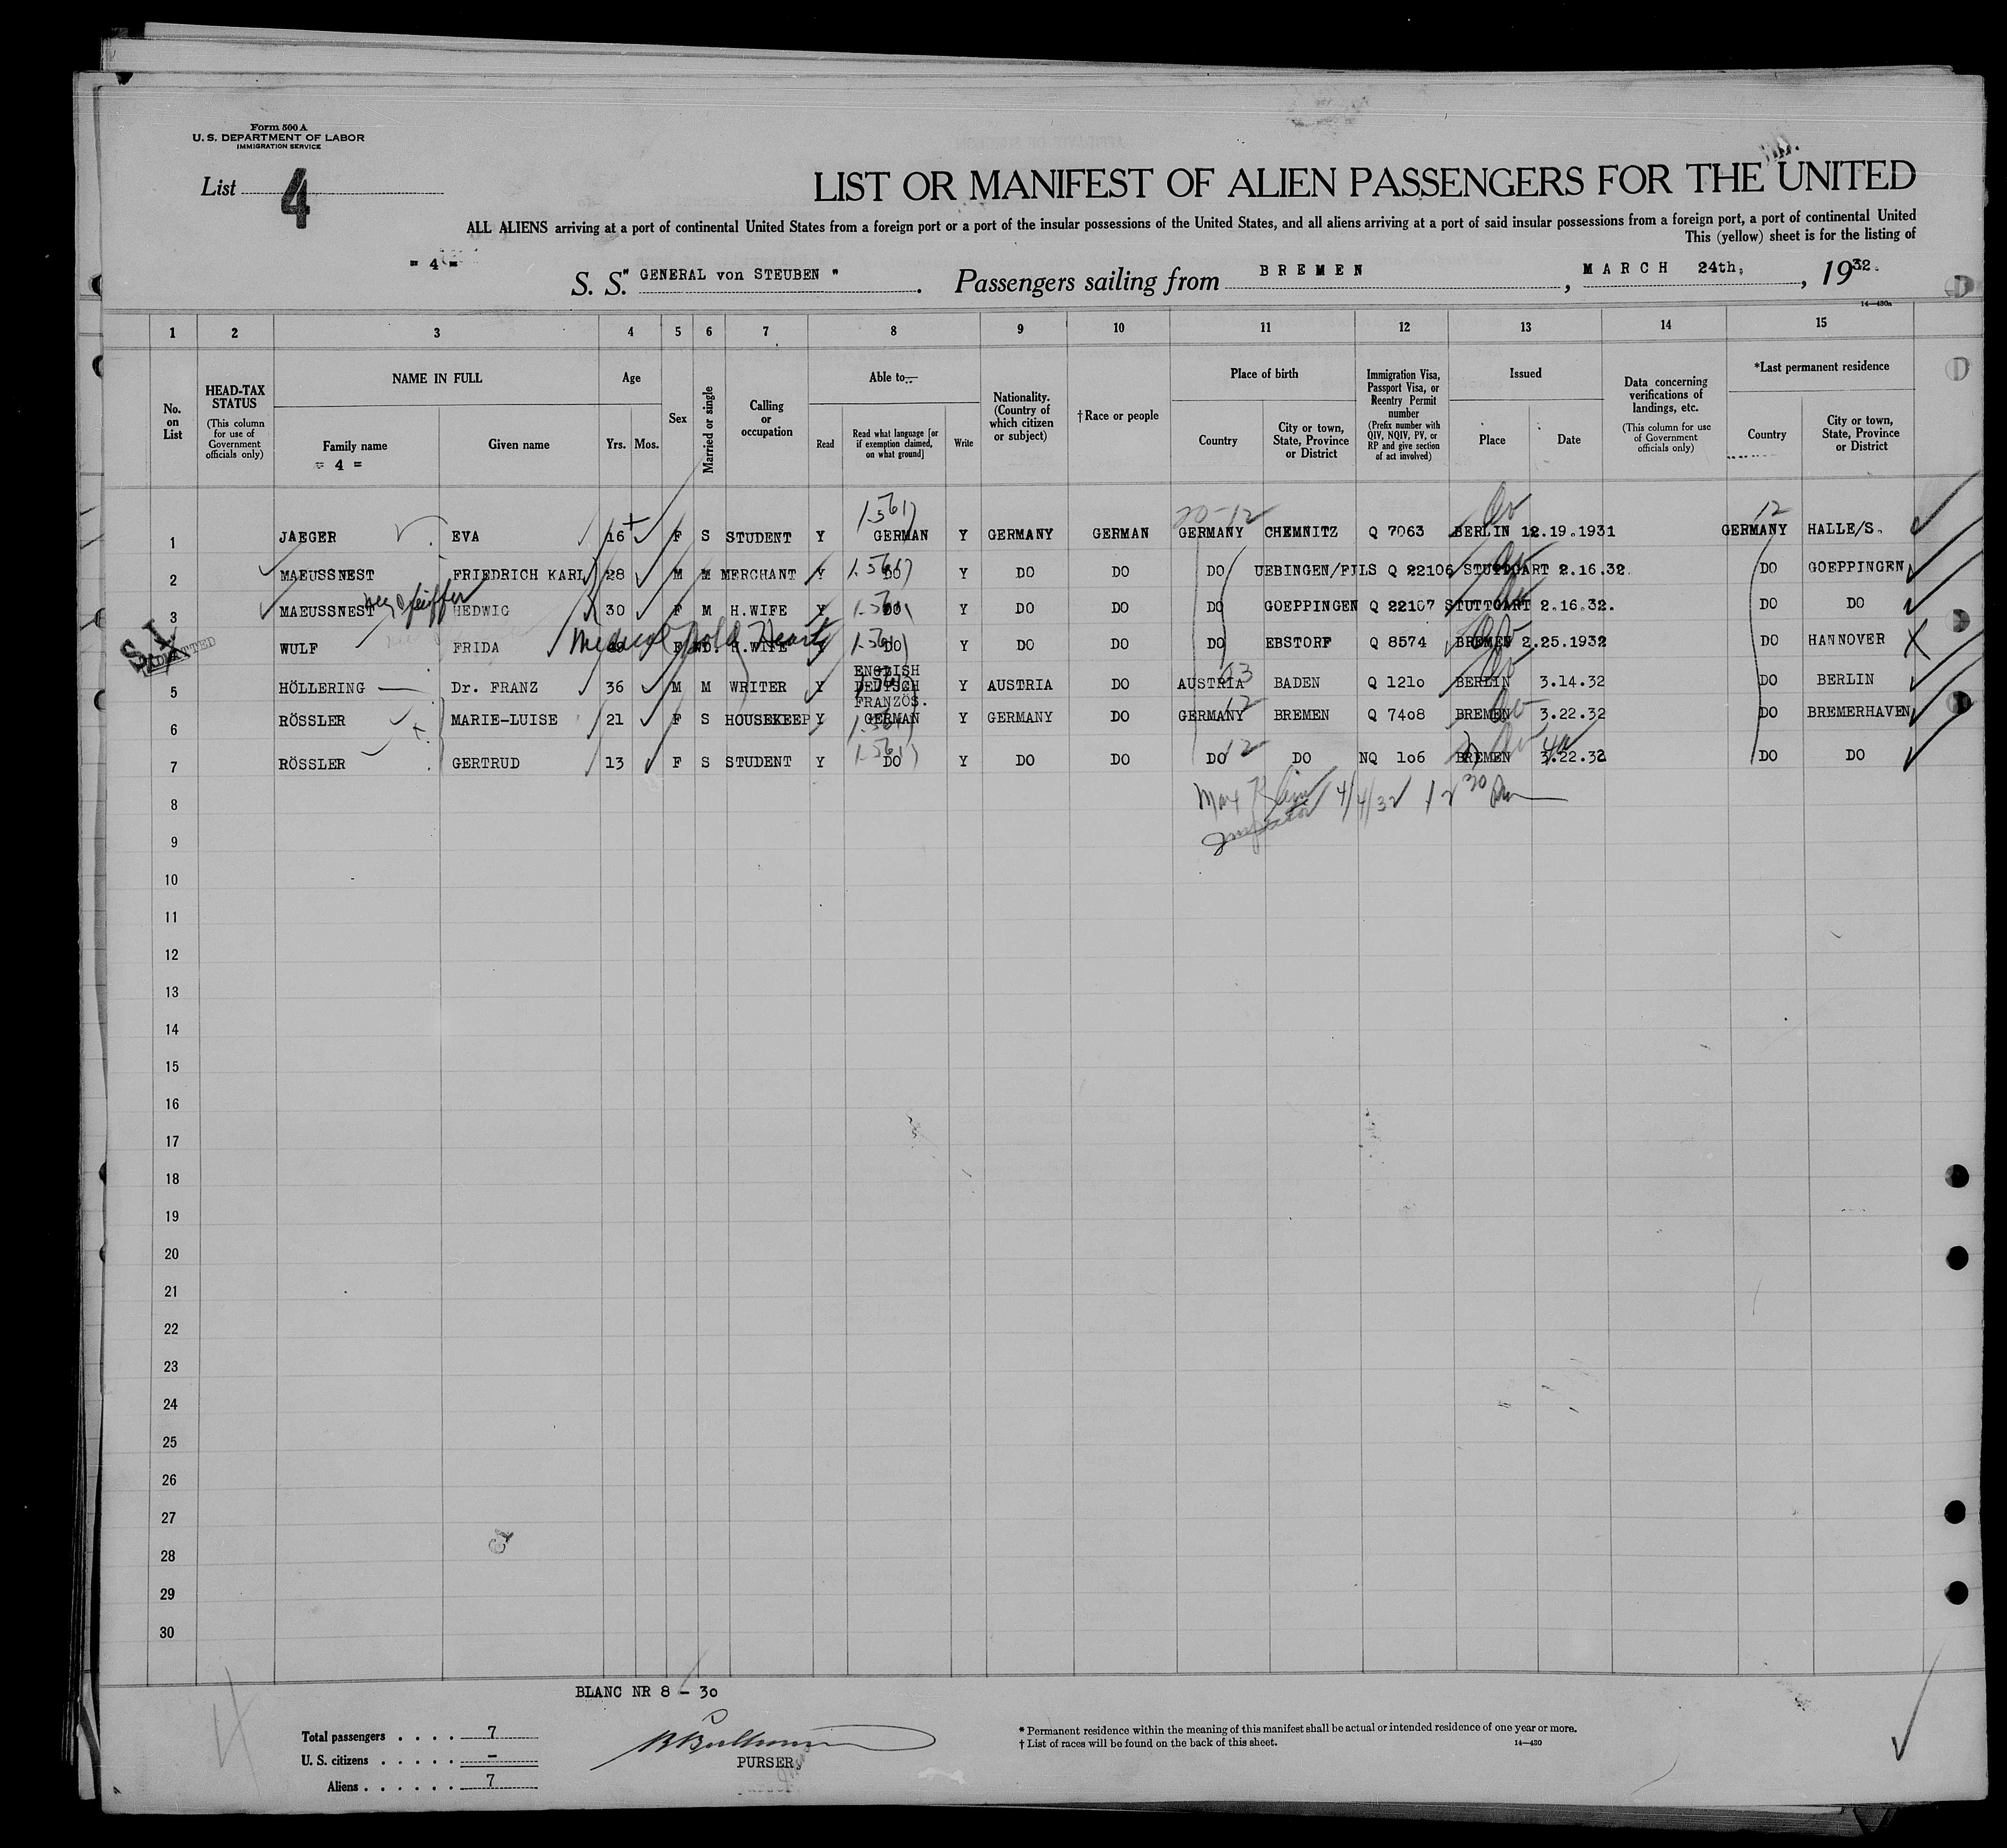 Form 500 A
U. S. DEPARTMENT OF LABOR
IMMIGRATION SERVICE
List 4
LIST OR MANIFEST OF ALIEN PASSENGERS FOR THE UNITED
ALL ALIENS arriving at a port of continental United States from a foreign port or a port of the insular possessions of the United States, and all aliens arriving at a port of said insular possessions from a foreign port, a port of continental United
This (yellow) sheet is for the listing of
= 4 =
S. S. " GENERAL von STEUBEN " . Passengers sailing from BREMEN , MARCH 24th, , 1932.
14—430a
1 2 3 4 5 6 7 8 9 10 11 12 13 14 15
No. on List
HEAD-TAX STATUS
(This column for use of Government officials only)
NAME IN FULL
Family name
= 4 =
Given name
Age
Yrs. Mos.
Sex
Married or single
Calling or occupation
Able to—
Read
Read what language [or if exemption claimed, on what ground]
Write
Nationality. (Country of which citizen or subject)
†Race or people
Place of birth
Country
City or town, State, Province or District
Immigration Visa, Passport Visa, or Reentry Permit number
(Prefix number with QIV, NQIV, PV, or RP and give section of act involved)
Issued
Place
Date
Data concerning verifications of landings, etc.
(This column for use of Government officials only)
*Last permanent residence
Country
City or town, State, Province or District
20-12 12
1 JAEGER EVA 16 F S STUDENT Y GERMAN Y GERMANY GERMAN GERMANY CHEMNITZ Q 7063 BERLIN 12.19.1931 GERMANY HALLE/S.
2 MAEUSSNEST FRIEDRICH KARL 28 M M MERCHANT Y DO Y DO DO DO UEBINGEN/FILS Q 22106 STUTTGART 2.16.32. DO GOEPPINGEN
3 MAEUSSNEST HEDWIG 30 F M H.WIFE Y DO Y DO DO DO GOEPPINGEN Q 22107 STUTTGART 2.16.32. DO DO
S.I.
ADMITTED
Medical hold Heart
WULF FRIDA F WD. H.WIFE Y DO Y DO DO DO EBSTORF Q 8574 BREMEN 2.25.1932 DO HANNOVER
ENGLISH
5 HÖLLERING Dr. FRANZ 36 M M WRITER Y DEUTSCH Y AUSTRIA DO AUSTRIA BADEN Q 121o BERLIN 3.14.32 DO BERLIN
FRANZÖS.
6 RÖSSLER MARIE-LUISE 21 F S HOUSEKEEP Y GERMAN Y GERMANY DO GERMANY BREMEN Q 74o8 BREMEN 3.22.32 DO BREMERHAVEN
7 RÖSSLER GERTRUD 13 F S STUDENT Y DO Y DO DO DO DO NQ 1o6 BREMEN 3.22.32 DO DO
8 Max Klein 4/4/32 12 30 Pm
9 Inspector
10
11
12
13
14
15
16
17
18
19
20
21
22
23
24
25
26
27
28
29
30
BLANC NR 8 - 3o
Total passengers . . . . 7
U. S. citizens . . . . . -
Aliens . . . . . . 7
PURSER
* Permanent residence within the meaning of this manifest shall be actual or intended residence of one year or more.
† List of races will be found on the back of this sheet.
14—430